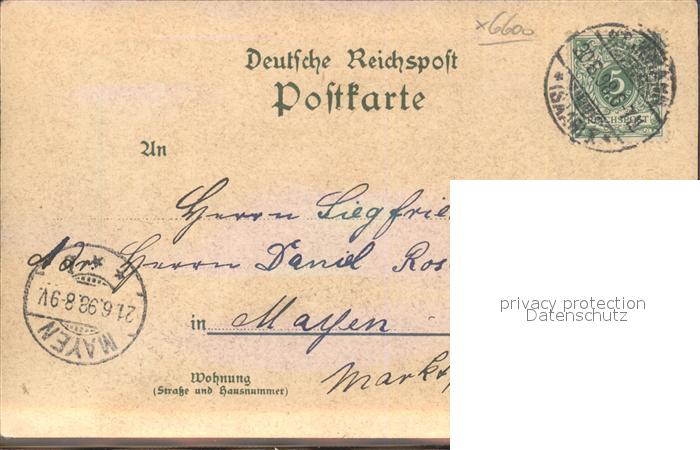 x6600
Deutsche Reichspost
Postkarte
5
REICHSPOST
An
Herrn Siegfrie
Adr. Herrn Daniel Ros
21.6.98.8-9V.
MAYEN
in Mayen
Wohnung
(Straße und Hausnummer)
Markt
privacy protection
Datenschutz